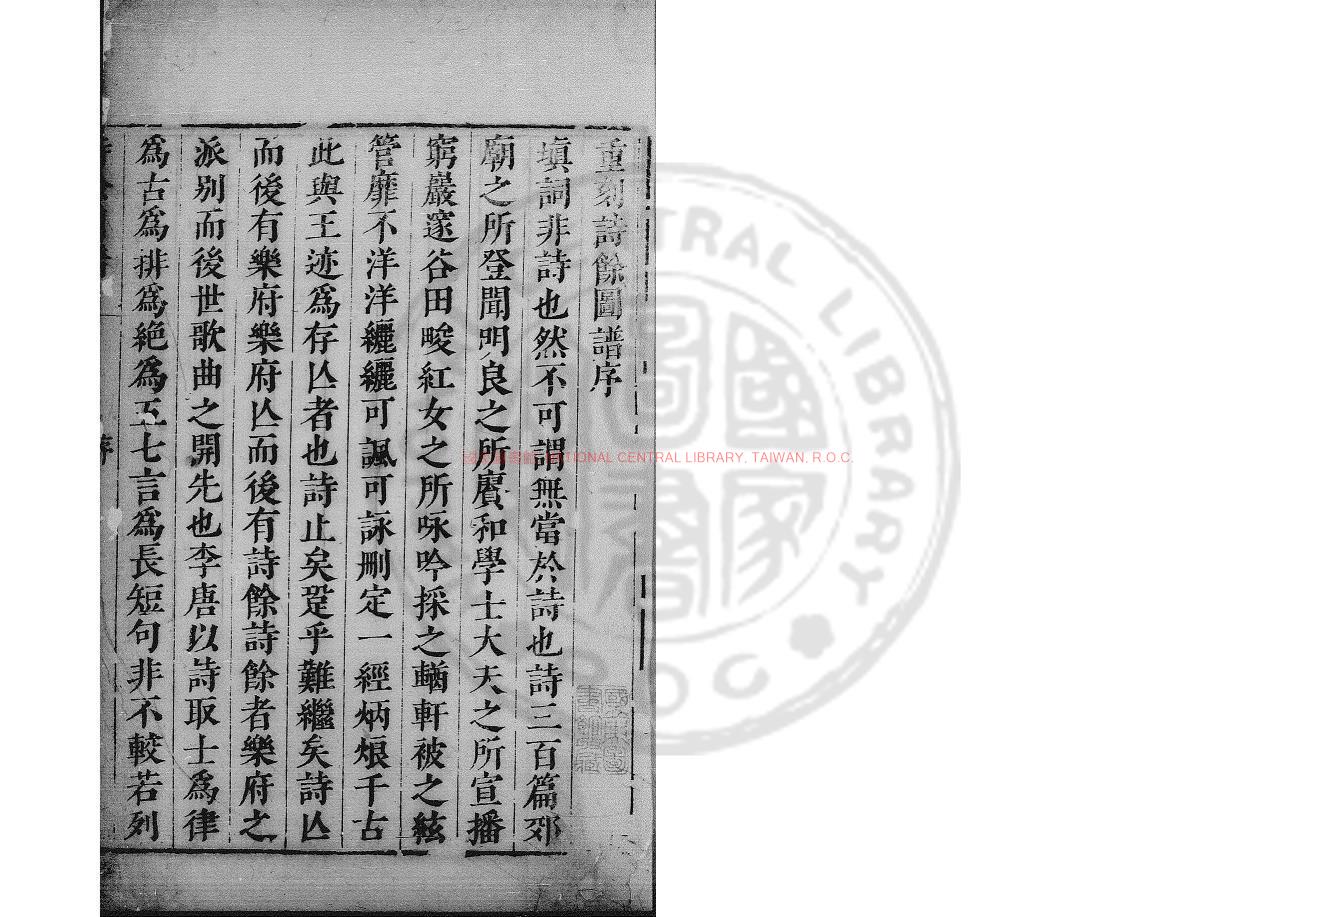 重刻詩餘圖譜序
填詞非詩也然不可謂無當於詩也詩三百篇郊
廟之所登聞明良之所賡和學士大夫之所宣播
窮巖邃谷田畯紅女之所咏吟採之輶軒被之絃
管靡不洋洋纚纚可諷可詠刪定一經炳烺千古
此與王迹為存亾者也詩止矣詎乎難繼矣詩亾
而後有樂府樂府亾而後有詩餘詩餘者樂府之
派別而後世歌曲之開先也李唐以詩取士為律
為古為排為絶為五七言為長短句非不較若列
序
國家圖書館 NATIONAL CENTRAL LIBRARY, TAIWAN, R.O.C.
CENTRAL LIBRARY
R O C